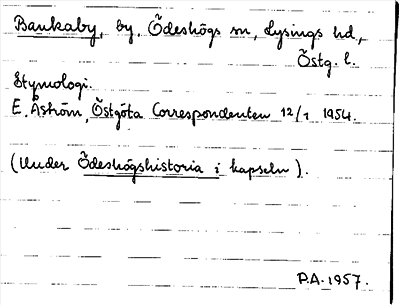 Baukaby, by, Ödeshögs sn, Lysings hd,
Östg. l.
Etymologi.
E. Åström, Östgöta Correspondenten 12/1 1954.
(Under Ödeshögshistoria i kapseln).
P.A. 1957.